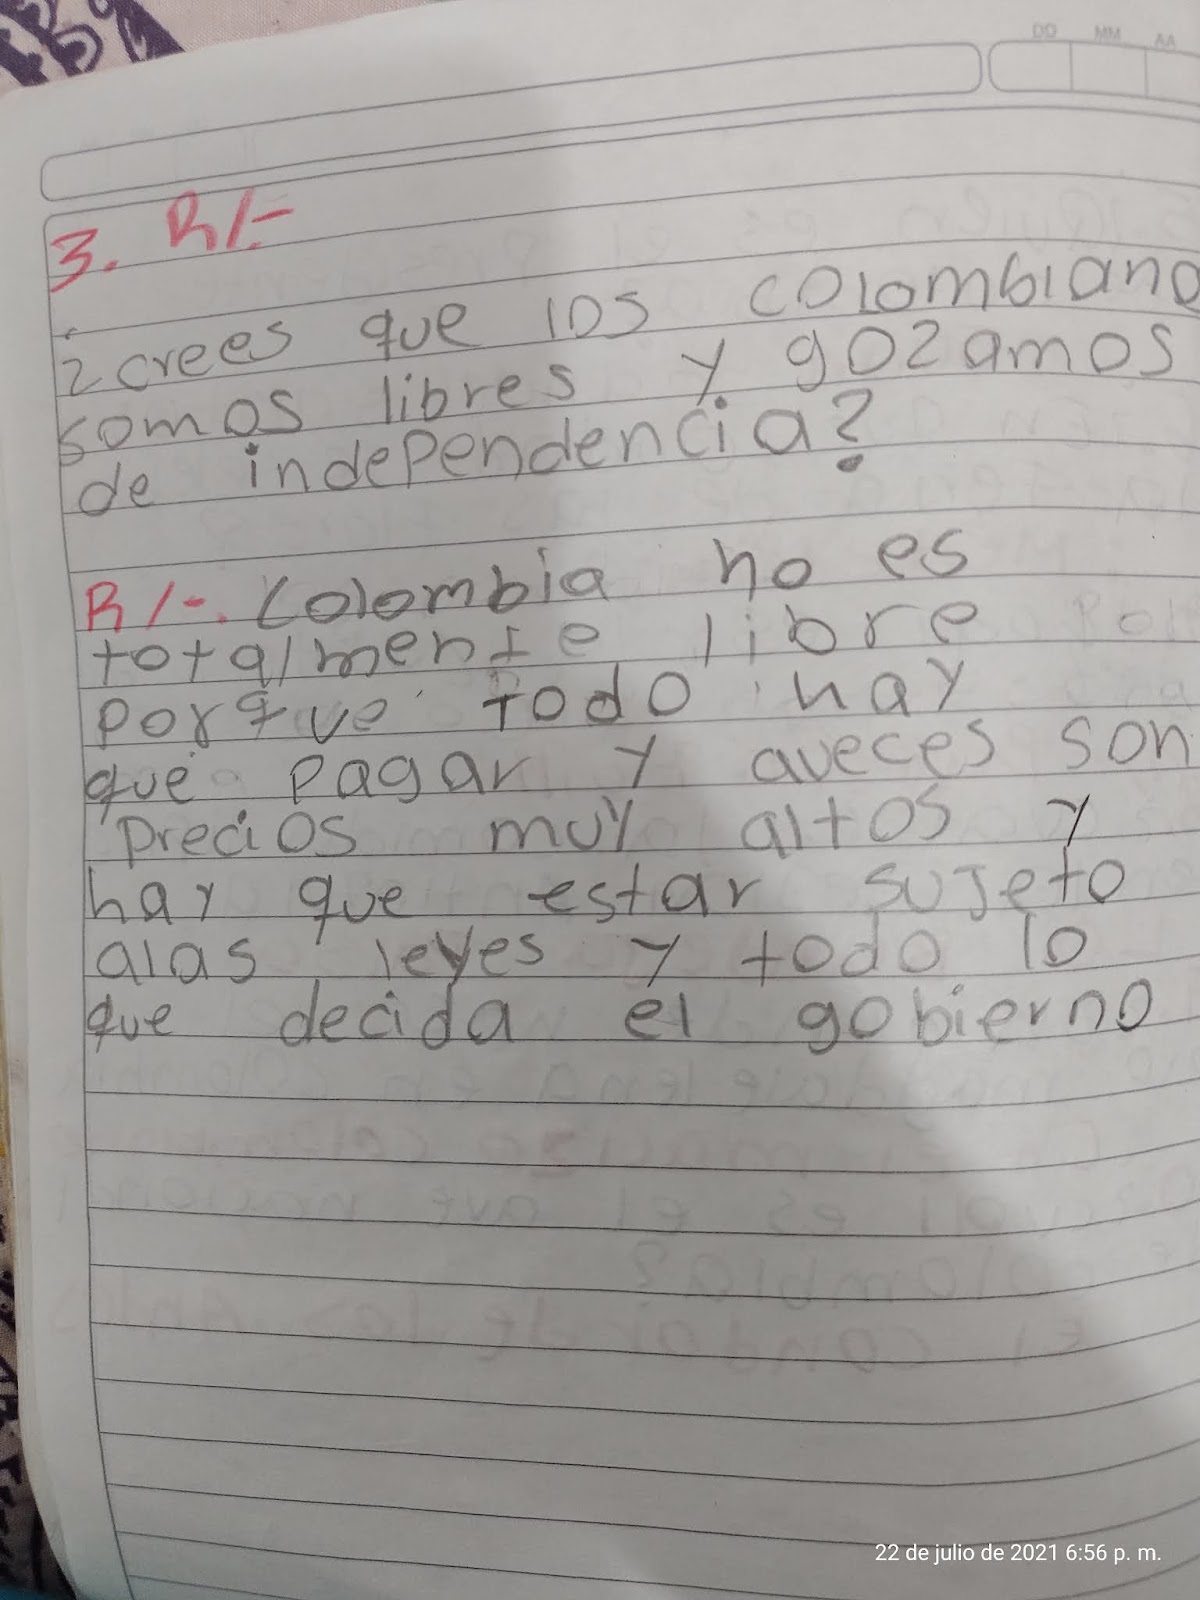 DD MM AA
3. R/-
¿crees que los colombiano
somos libres y gozamos
de independencia?
R/-. Colombia no es
totalmente libre
porque todo hay
que pagar y aveces son
precios muy altos y
hay que estar sujeto
alas leyes y todo lo
que decida el gobierno
22 de julio de 2021 6:56 p. m.